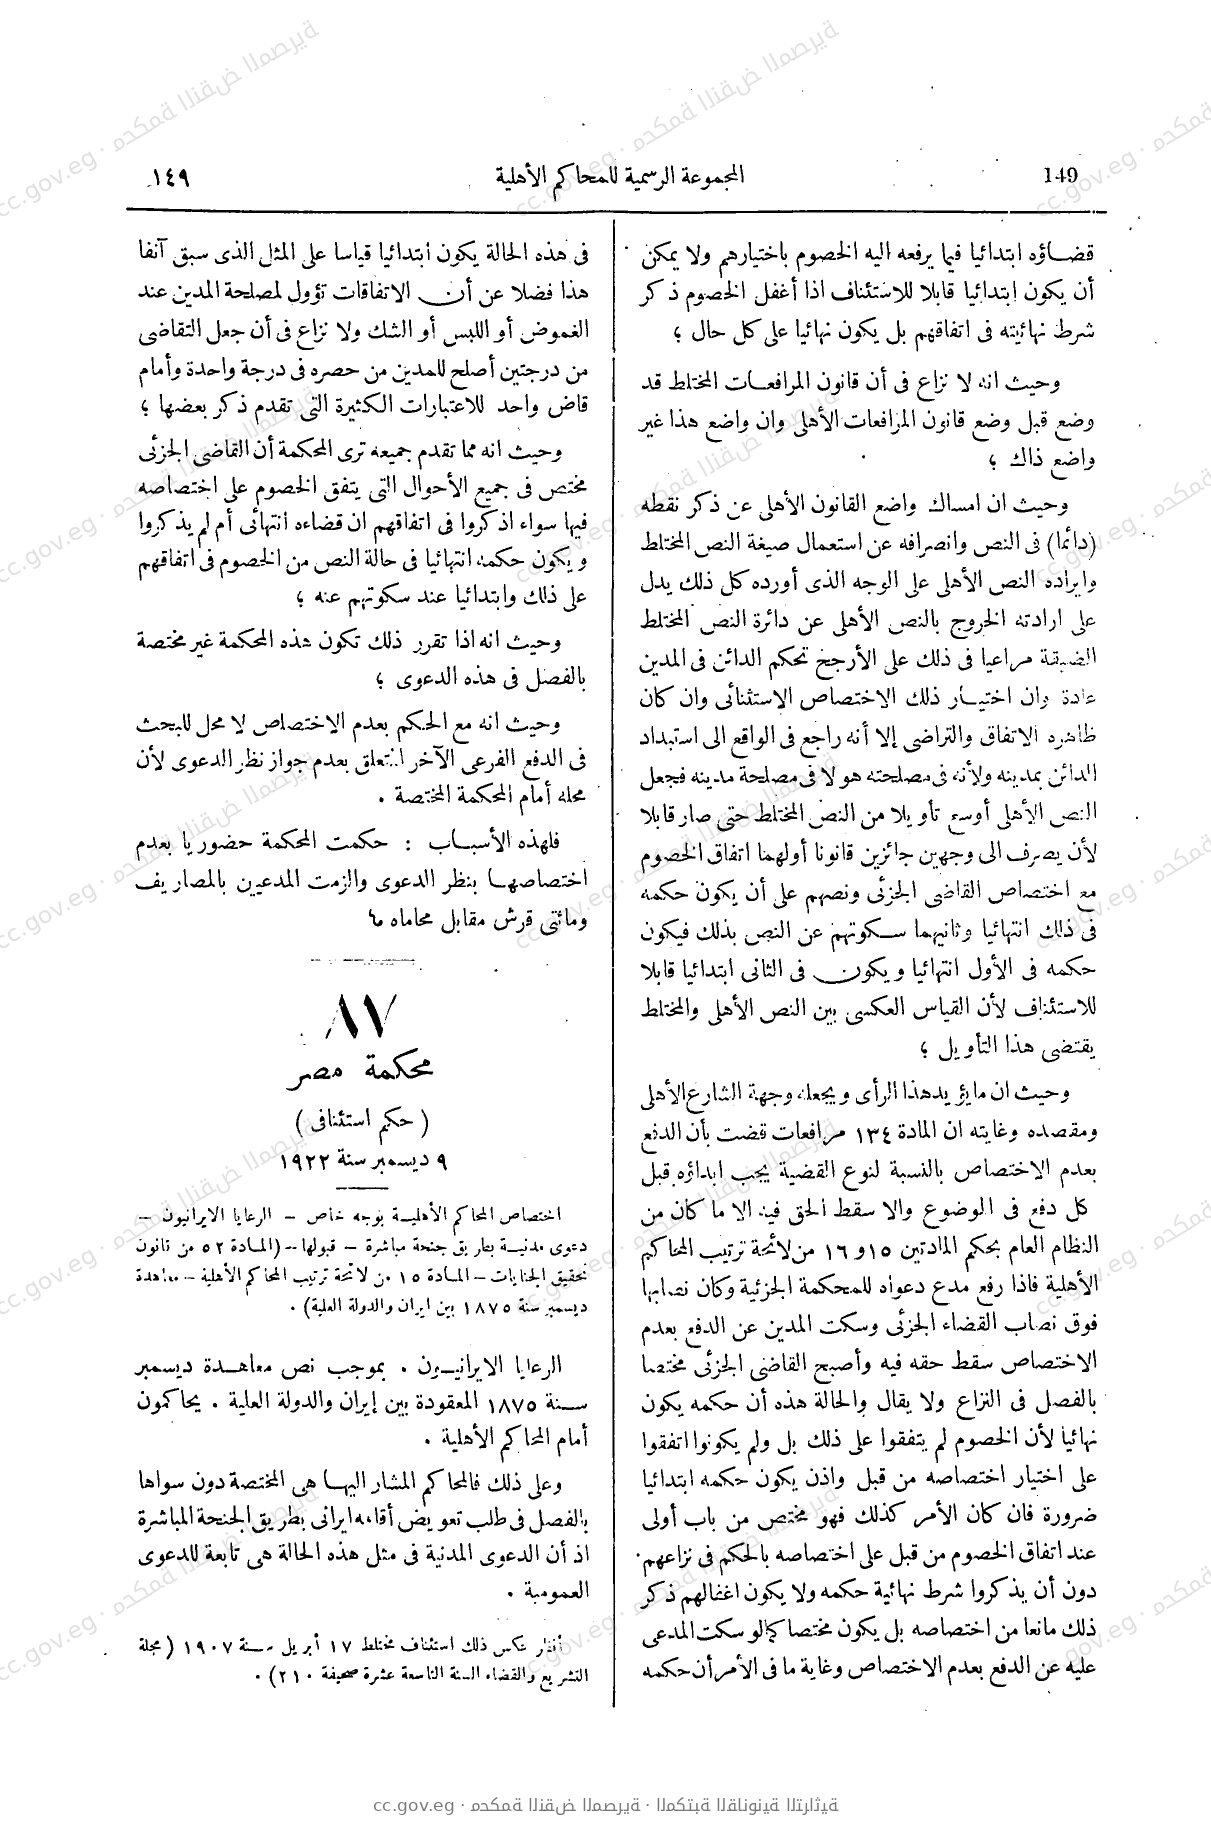 149
المجموعة الرسمية للمحاكم الأهلية
١٤٩
قضاؤه ابتدائيا فيما يرفعه اليه الخصوم باختيارهم ولا يمكن
أن يكون ابتدائيا قابلا للاستئناف اذا أغفل الخصوم ذكر
شرط نهائيته فى اتفاقهم بل يكون نهائيا على كل حال ؛
وحيث انه لا نزاع فى أن قانون المرافعات المختلط قد
وضع قبل وضع قانون المرافعات الأهلى وان واضع هذا غير
واضع ذاك ؛
وحيث ان امساك واضع القانون الأهلى عن ذكر نقطه
(دائما) فى النص وانصرافه عن استعمال صيغة النص المختلط
وايراده النص الأهلى على الوجه الذى أورده كل ذلك يدل
على ارادته الخروج بالنص الأهلى عن دائرة النص المختلط
الضيقة مراعيا فى ذلك على الأرجح تحكم الدائن فى المدين
عادة وان اختيار ذلك الاختصاص الاستثنائى وان كان
ظاهره الاتفاق والتراضى إلا أنه راجع فى الواقع الى استبداد
الدائن بمدينه ولأنه فى مصلحته هو لا فى مصلحة مدينه فجعل
النص الأهلى أوسع تأويلا من النص المختلط حتى صار قابلا
لأن يصرف الى وجهين جائزين قانونا أولهما اتفاق الخصوم
مع اختصاص القاضى الجزئى ونصهم على أن يكون حكمه
فى ذلك انتهائيا وثانيهما سكوتهم عن النص بذلك فيكون
حكمه فى الأول انتهائيا ويكون فى الثانى ابتدائيا قابلا
للاستئناف لأن القياس العكسى بين النص الأهلى والمختلط
يقتضى هذا التأويل ؛
وحيث ان ما يؤيد هذا الرأى ويجعله وجهة الشارع الأهلى
ومقصده وغايته ان المادة ١٣٤ مرافعات قضت بأن الدفع
بعدم الاختصاص بالنسبة لنوع القضية يجب ابداؤه قبل
كل دفع فى الموضوع والا سقط الحق فيه الا ما كان من
النظام العام بحكم المادتين ١٥ و ١٦ من لائحة ترتيب المحاكم
الأهلية فاذا رفع مدع دعواه للمحكمة الجزئية وكان نصابها
فوق نصاب القضاء الجزئى وسكت المدين عن الدفع بعدم
الاختصاص سقط حقه فيه وأصبح القاضى الجزئى مختصا
بالفصل فى النزاع ولا يقال والحالة هذه أن حكمه يكون
نهائيا لأن الخصوم لم يتفقوا على ذلك بل ولم يكونوا اتفقوا
على اختيار اختصاصه من قبل واذن يكون حكمه ابتدائيا
ضرورة فان كان الأمر كذلك فهو مختص من باب أولى
عند اتفاق الخصوم من قبل على اختصاصه بالحكم فى نزاعهم
دون أن يذكروا شرط نهائية حكمه ولا يكون اغفالهم ذكر
ذلك مانعا من اختصاصه بل يكون مختصا كما لو سكت المدعى
عليه عن الدفع بعدم الاختصاص وغاية ما فى الأمر أن حكمه
فى هذه الحالة يكون ابتدائيا قياسا على المثل الذى سبق آنفا
هذا فضلا عن أن الاتفاقات تؤول لمصلحة المدين عند
الغموض أو اللبس أو الشك ولا نزاع فى أن جعل التقاضى
من درجتين أصلح للمدين من حصره فى درجة واحدة وأمام
قاض واحد للاعتبارات الكثيرة التى تقدم ذكر بعضها ؛
وحيث انه مما تقدم جميعه ترى المحكمة أن القاضى الجزئى
مختص فى جميع الأحوال التى يتفق الخصوم على اختصاصه
فيها سواء اذكروا فى اتفاقهم ان قضاءه انتهائى أم لم يذكروا
ويكون حكمه انتهائيا فى حالة النص من الخصوم فى اتفاقهم
على ذلك وابتدائيا عند سكوتهم عنه ؛
وحيث انه اذا تقرر ذلك تكون هذه المحكمة غير مختصة
بالفصل فى هذه الدعوى ؛
وحيث انه مع الحكم بعدم الاختصاص لا محل للبحث
فى الدفع الفرعى الآخر المتعلق بعدم جواز نظر الدعوى لأن
محله أمام المحكمة المختصة .
فلهذه الأسباب : حكمت المحكمة حضوريا بعدم
اختصاصها بنظر الدعوى والزمت المدعين بالمصاريف
ومائتى قرش مقابل محاماه م؟
٨٧
محكمة مصر
(حكم استئنافى)
٩ ديسمبر سنة ١٩٢٢
اختصاص المحاكم الأهلية بوجه خاص – الرعايا الايرانيون –
دعوى مدنية بطريق جنحة مباشرة – قبولها – (المادة ٥٢ من قانون
تحقيق الجنايات – المادة ١٥ من لائحة ترتيب المحاكم الأهلية – معاهدة
ديسمبر سنة ١٨٧٥ بين ايران والدولة العلية) .
الرعايا الايرانيون . بموجب نص معاهدة ديسمبر
سنة ١٨٧٥ المعقودة بين إيران والدولة العلية . يحاكمون
أمام المحاكم الأهلية .
وعلى ذلك فالمحاكم المشار اليها هى المختصة دون سواها
بالفصل فى طلب تعويض أقامه ايرانى بطريق الجنحة المباشرة
اذ أن الدعوى المدنية فى مثل هذه الحالة هى تابعة للدعوى
العمومية .
أنظر عكس ذلك استئناف مختلط ١٧ أبريل سنة ١٩٠٧ (مجلة
التشريع والقضاء السنة التاسعة عشرة صحيفة ٢١٠) .
cc.gov.eg · محكمة النقض المصرية · المكتبة القانونية التراثية